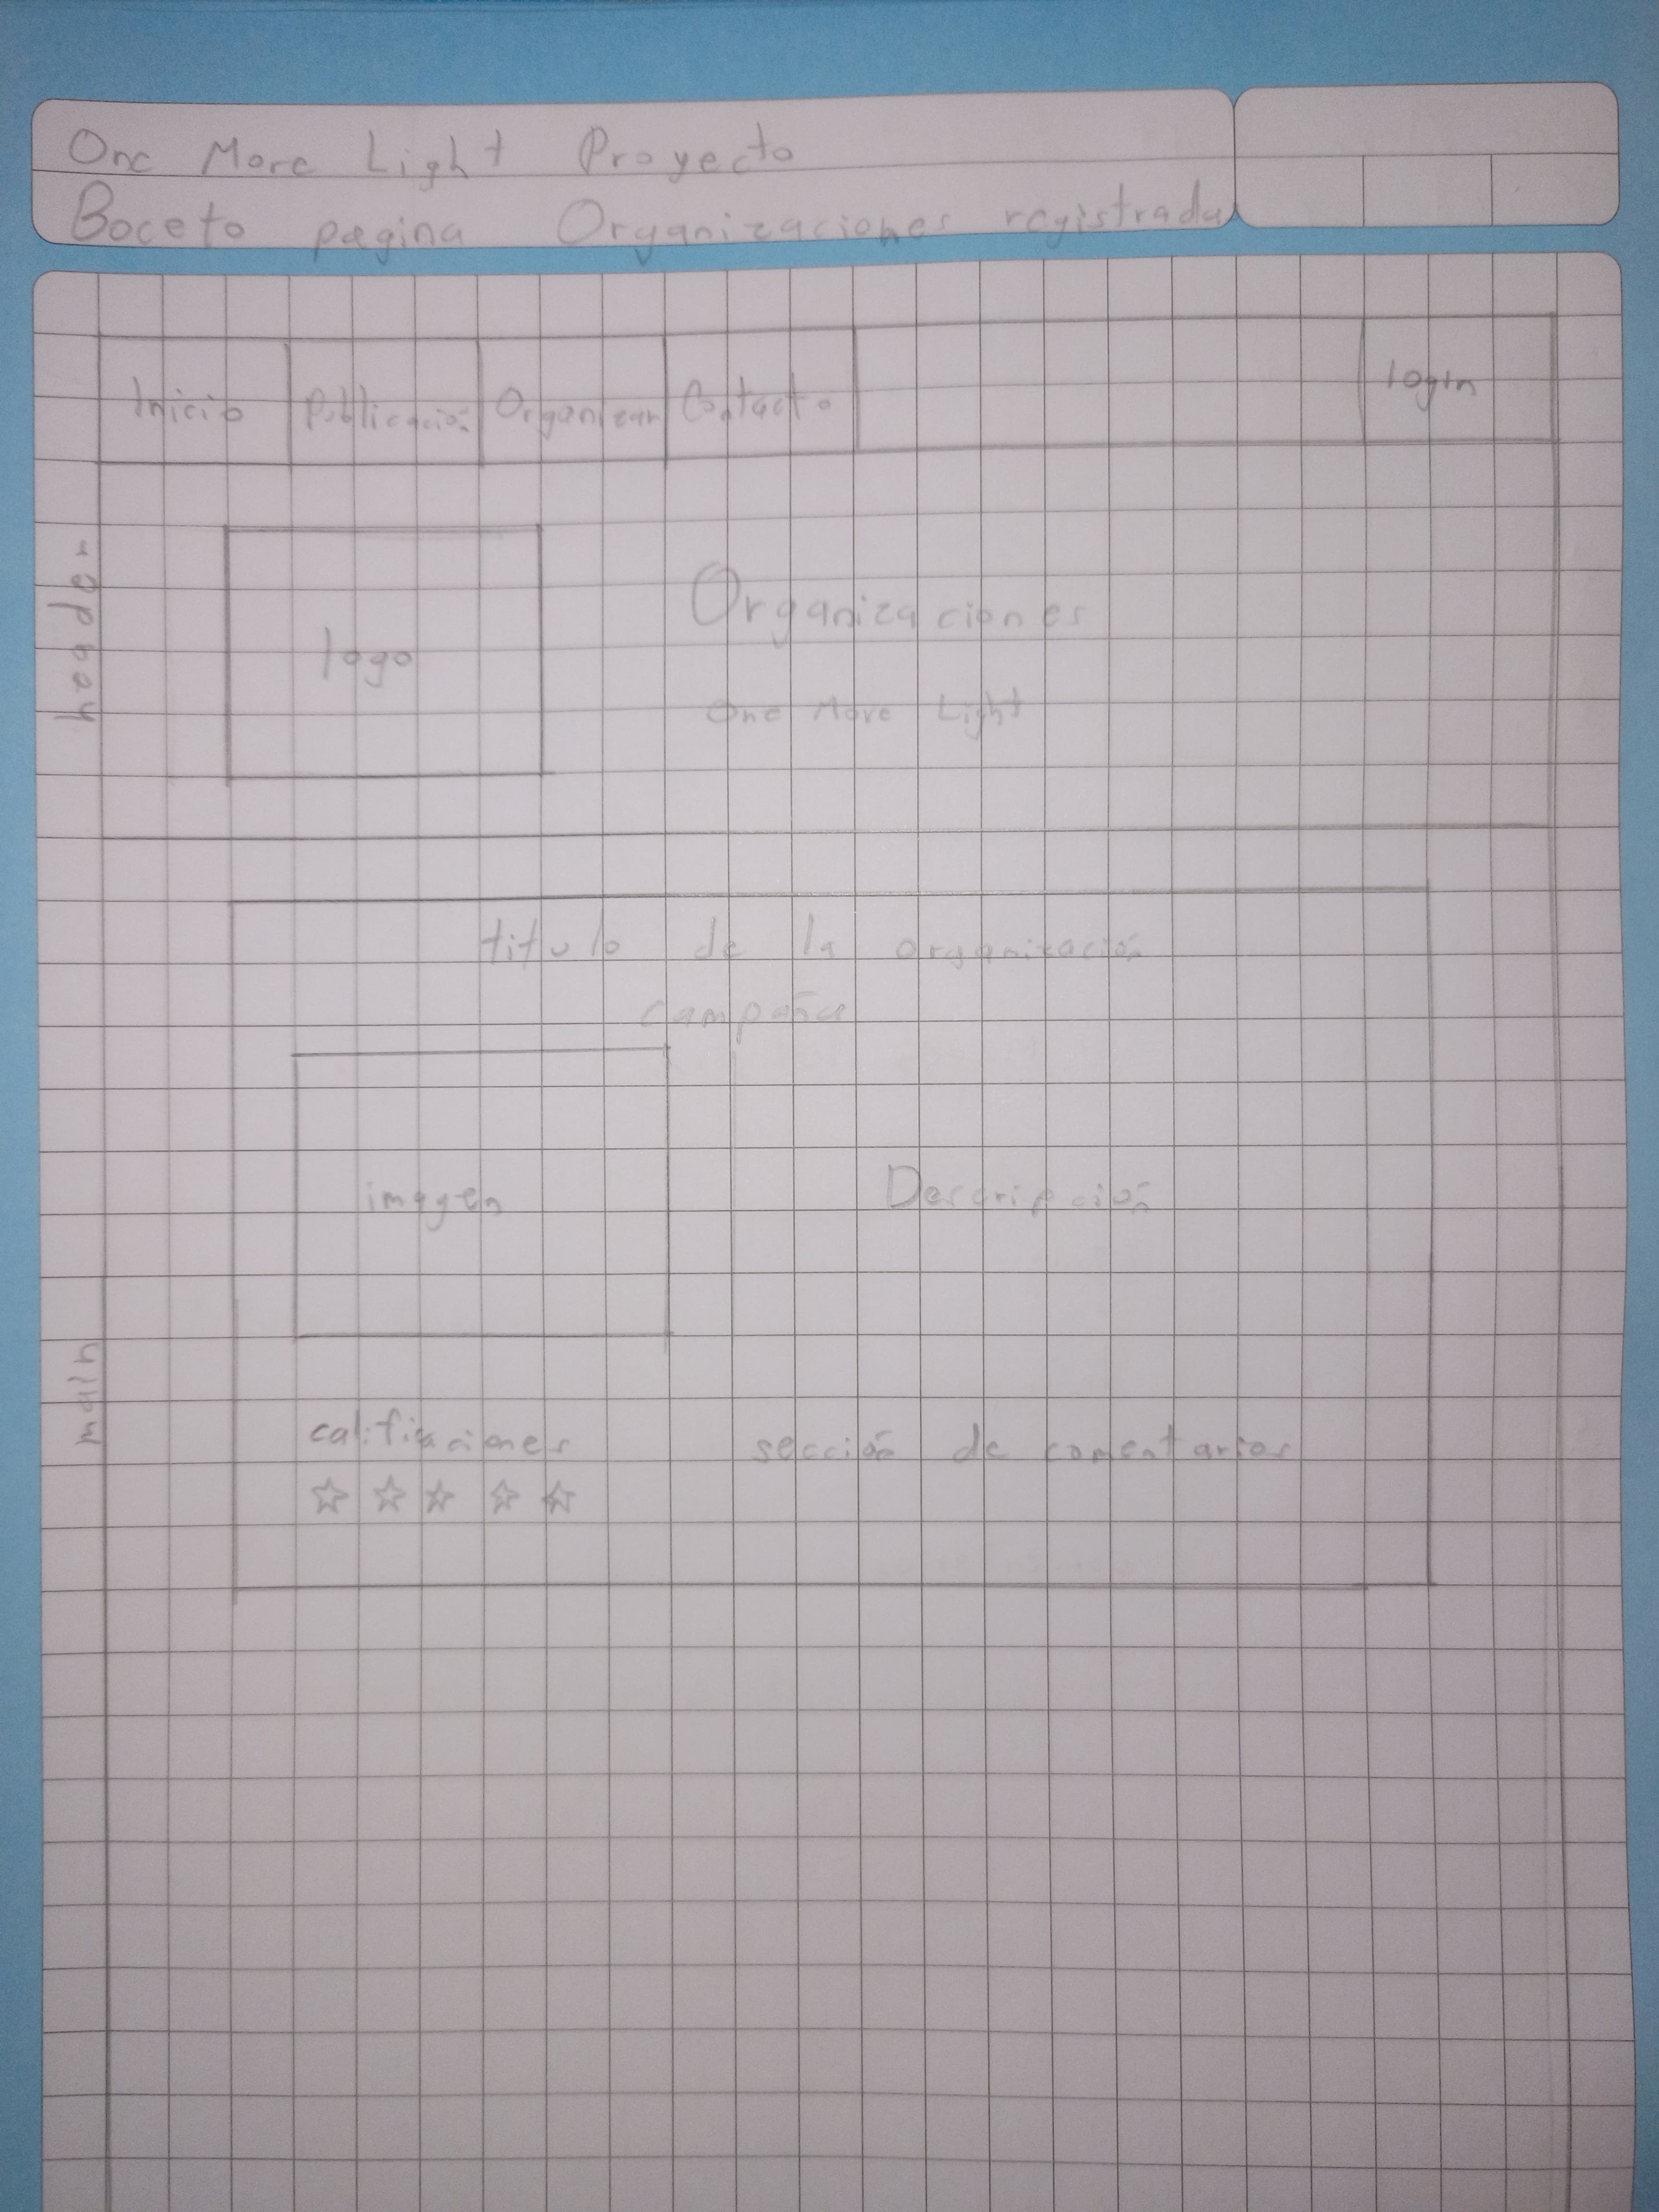 One More Light Proyecto
Boceto pagina Organizaciones registrada
Inicio Publicación Organizar Contacto login
header
logo
Organizaciones
One More Light
titulo de la organización
campaña
imagen
Descripción
main
calificaciones
sección de comentarios
☆ ☆ ☆ ☆ ☆